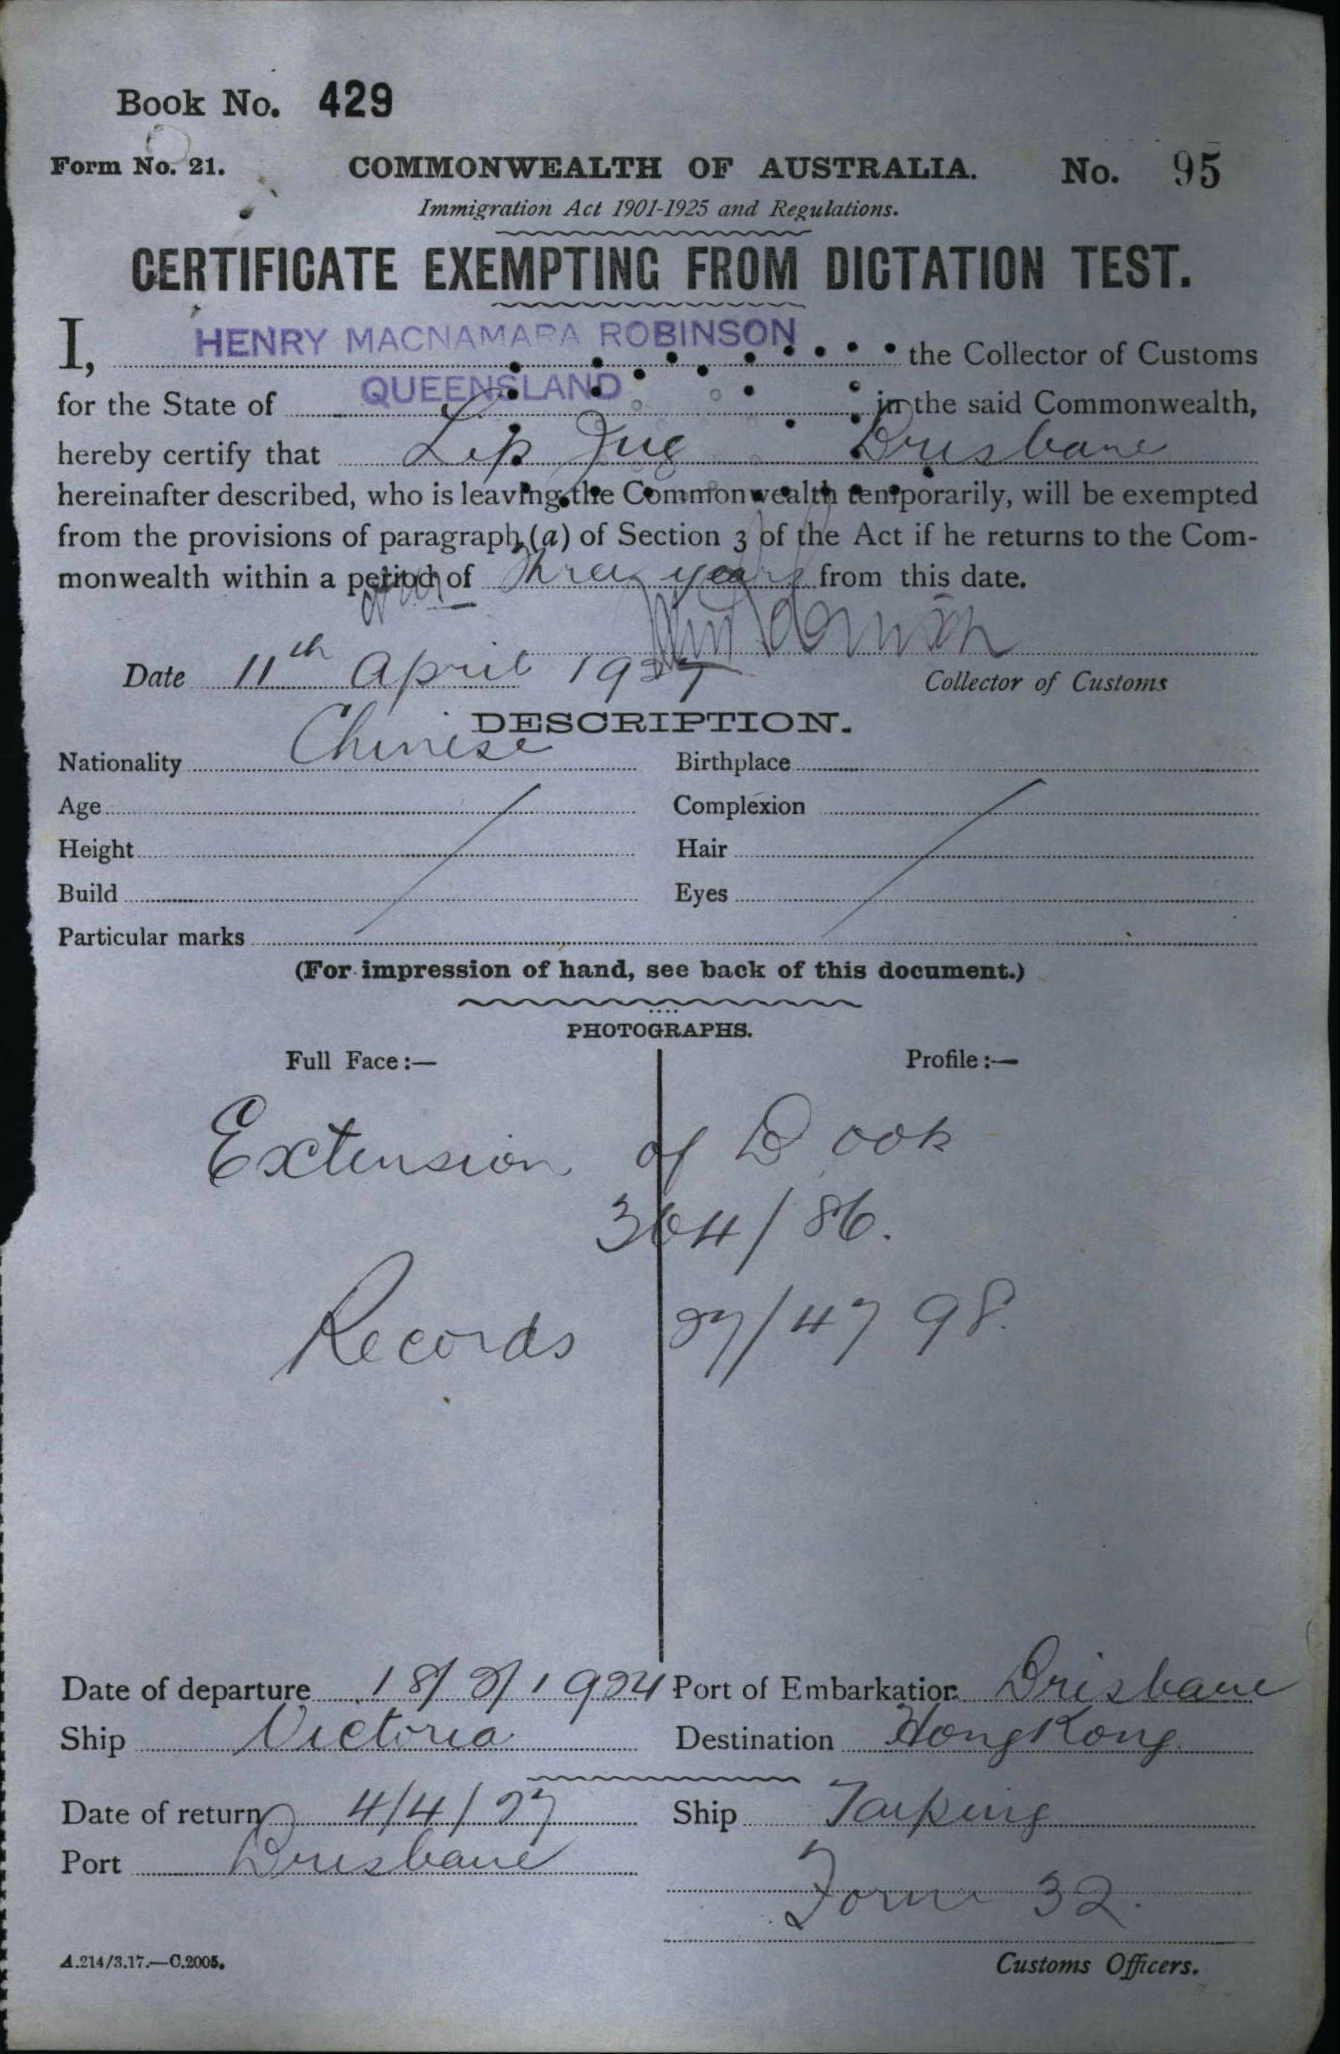 Book No. 429
Form No. 21. COMMONWEALTH OF AUSTRALIA. No. 95
Immigration Act 1901-1925 and Regulations.
CERTIFICATE EXEMPTING FROM DICTATION TEST.
I, HENRY MACNAMARA ROBINSON the Collector of Customs
for the State of QUEENSLAND in the said Commonwealth,
hereby certify that Lip Jue Brisbane
hereinafter described, who is leaving the Commonwealth temporarily, will be exempted
from the provisions of paragraph (a) of Section 3 of the Act if he returns to the Com-
monwealth within a period of Three years from this date.
Date 11th April 1927 Collector of Customs
DESCRIPTION.
Nationality Chinese Birthplace
Age Complexion
Height Hair
Build Eyes
Particular marks
(For impression of hand, see back of this document.)
PHOTOGRAPHS.
Full Face:— Profile:—
Extension of Book
364/86.
Records 27/4798.
Date of departure 18/2/1924 Port of Embarkation Brisbane
Ship Victoria Destination HongKong
Date of return 4/4/27 Ship Taiping
Port Brisbane
Form 32.
A.214/3.17.—C.2005. Customs Officers.